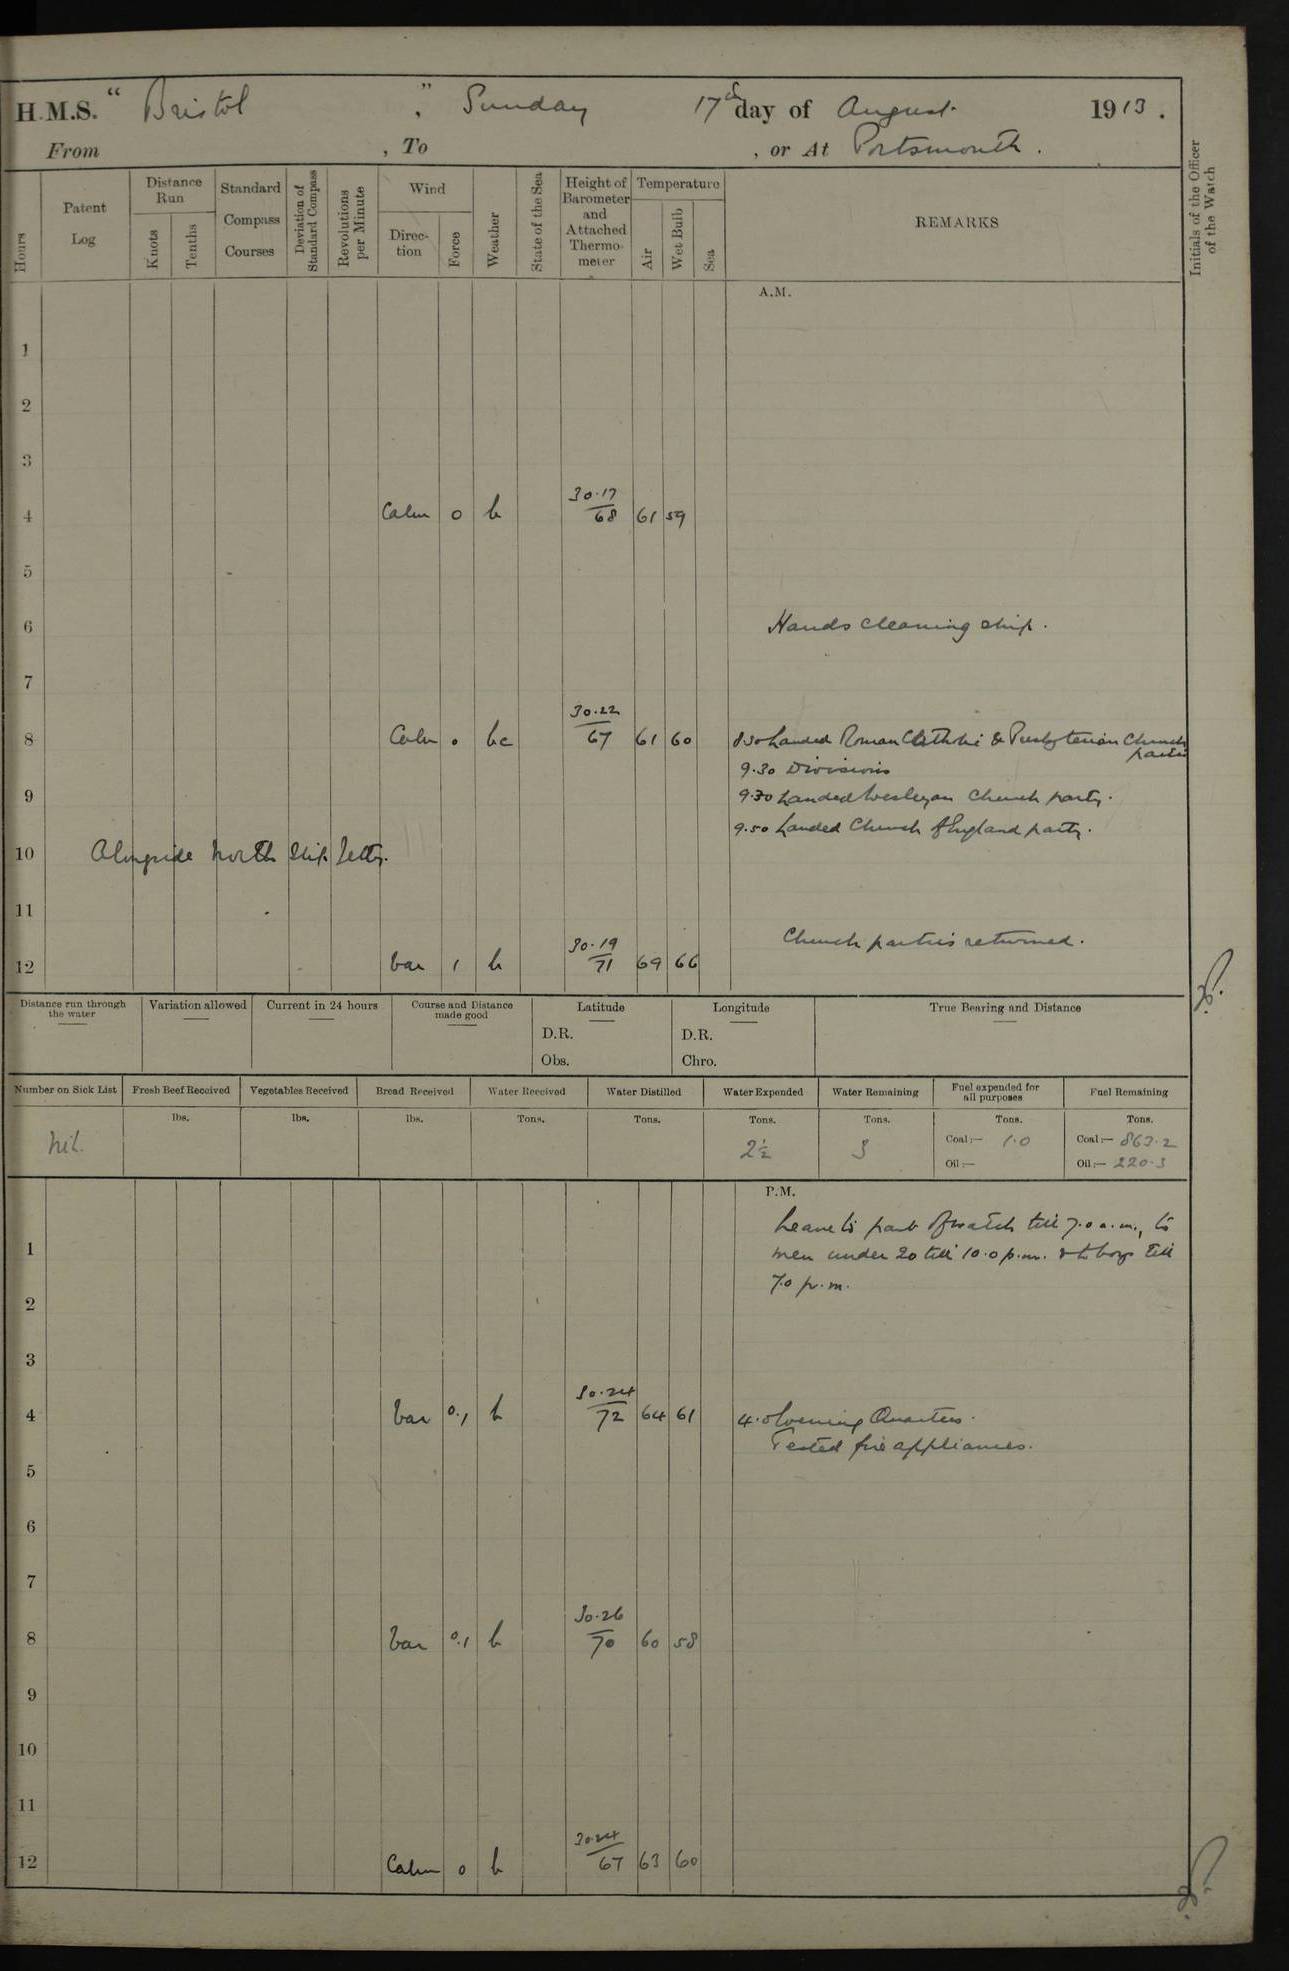 H.M.S. “ Bristol ” , Sunday 17th day of August 1913 .
From , To , or At Portsmouth .
Hours
Patent Log
Distance Run
Knots
Tenths
Standard Compass Courses
Deviation of Standard Compass
Revolutions per Minute
Wind
Direction
Force
Weather
State of the Sea
Height of Barometer and Attached Thermometer
Temperature
Air
Wet Bulb
Sea
REMARKS
Initials of the Officer of the Watch
A.M.
1
2
3
4 Calm 0 b 30.17/68 61 59
5
6 Hands cleaning ship.
7
8 Calm 0 bc 30.22/67 61 60 8.30 Landed Roman Catholic & Presbyterian Church parties
9.30 Divisions
9 9.30 Landed Wesleyan Church party.
9.50 Landed Church of England party.
10 Alongside North Slip Jetty.
11
Church parties returned.
12 Var 1 b 30.19/71 69 66
Distance run through the water
Variation allowed
Current in 24 hours
Course and Distance made good
Latitude
D.R.
Obs.
Longitude
D.R.
Chro.
True Bearing and Distance
Number on Sick List
Fresh Beef Received
Vegetables Received
Bread Received
Water Received
Water Distilled
Water Expended
Water Remaining
Fuel expended for all purposes
Fuel Remaining
lbs. lbs. lbs. Tons. Tons. Tons. Tons. Tons. Tons.
Nil. 2½ Coal:— 1.0 Coal:— 863.2
Oil:— Oil:— 220.3
P.M.
Leave to part of watch till 7.0 a.m., to
1 men under 20 till 10.0 p.m. & to boys till
7.0 p.m.
2
3
4 Var 0.1 b 30.24/72 64 61 4.0 Evening Quarters.
Tested fire appliances.
5
6
7
8 Var 0.1 b 30.26/70 60 58
9
10
11
12 Calm 0 b 30.24/67 63 60